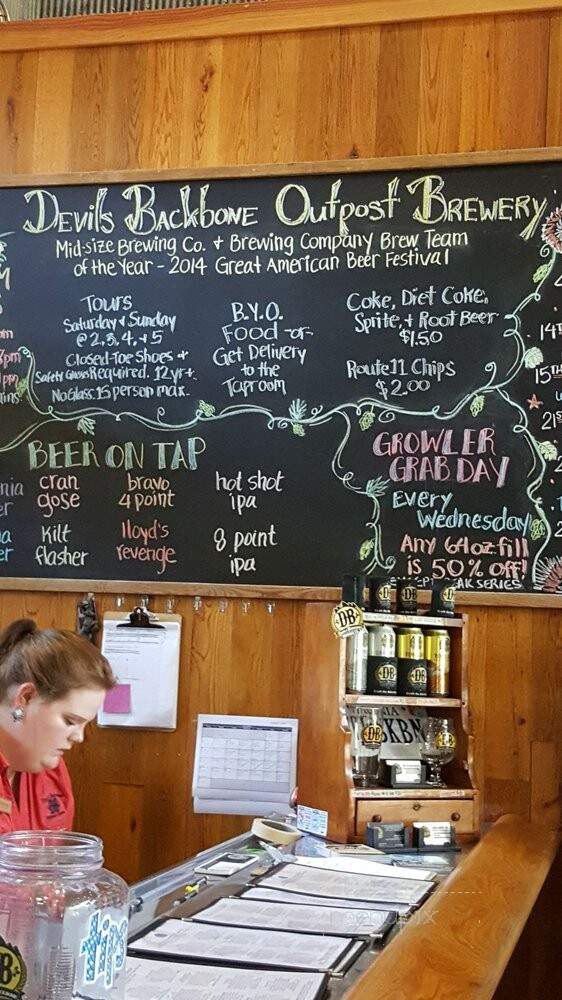 Devils Backbone Outpost Brewery
Mid-size Brewing Co. + Brewing Company Brew Team
of the Year - 2014 Great American Beer Festival
Tours
Saturday + Sunday
@ 2, 3, 4, + 5
Closed-Toe Shoes +
Safety Glasses Required. 12 yr+.
No Glass. 15 person max.
B.Y.O.
Food -or-
Get Delivery
to the
Taproom
Coke, Diet Coke,
Sprite, + Root Beer
$1.50
Route 11 Chips
$2.00
BEER ON TAP
cran
gose
bravo
4 point
hot shot
ipa
kilt
flasher
lloyd's
revenge
8 point
ipa
GROWLER
GRAB DAY
Every
Wednesday
Any 64oz fill
is 50% off!
SERIES
pm
14th
15th
21st
nia
er
DB
DB
DB
DB
KBN
tips